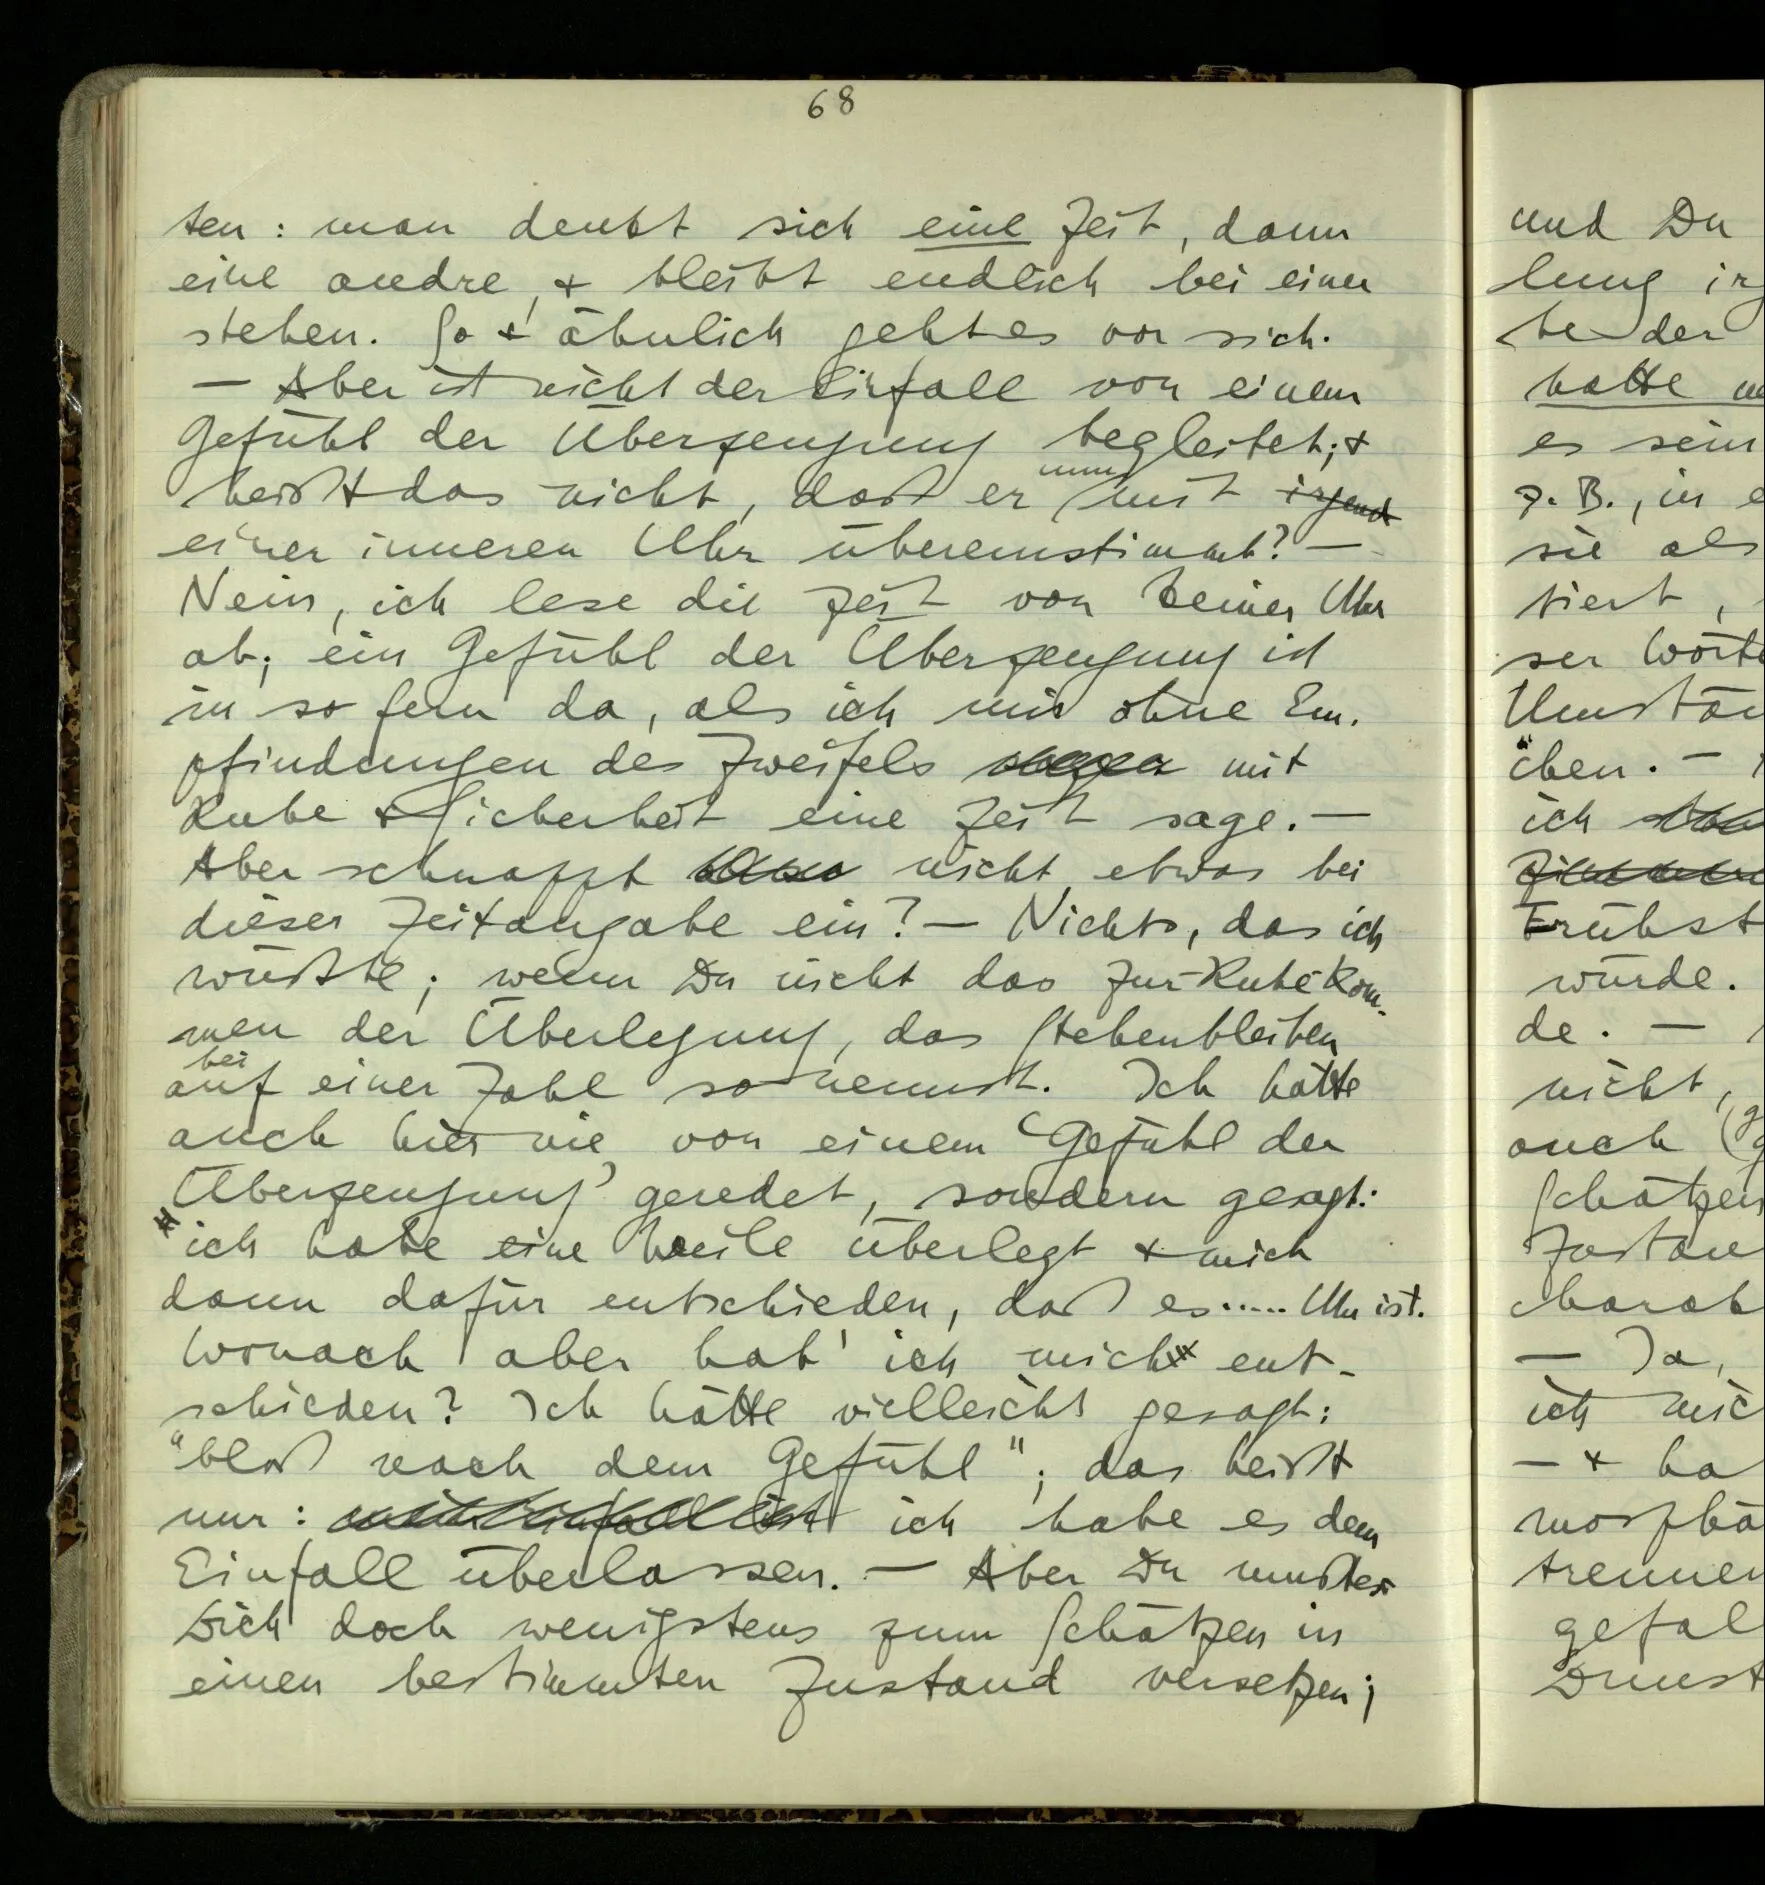 68
ten: man denkt sich eine Zeit, dann
eine andre, & bleibt endlich bei einer
stehen. So & ähnlich geht es vor sich.
— Aber ist nicht der Einfall von einem
Gefühl der Überzeugung begleitet; &
heißt das nicht, daß er nun mit irgend
einer inneren Uhr übereinstimmt? —
Nein, ich lese die Zeit von keiner Uhr
ab; ein Gefühl der Überzeugung ist
in so fern da, als ich mir ohne Em-
pfindungen des Zweifels mit
Ruhe & Sicherheit eine Zeit sage. —
Aber schnappt nicht etwas bei
dieser Zeitangabe ein? — Nichts, das ich
wüßte; wenn Du nicht das Zur-Ruhe-Kom-
men der Überlegung, das Stehenbleiben
bei
auf einer Zahl so nennst. Ich hätte
auch hier nie von einem 'Gefühl der
Überzeugung' geredet, sondern gesagt:
ich habe eine Weile überlegt & mich
dann dafür entschieden, daß es ..... Uhr ist.
Wonach aber hab' ich mich ent-
schieden? Ich hätte vielleicht gesagt:
"bloß nach dem Gefühl"; das heißt
nur: mein Einfall ist ich habe es dem
Einfall überlassen. — Aber Du mußtest
Dich doch wenigstens zum Schätzen in
einen bestimmten Zustand versetzen;
und Du
lung
be der
hatte
es sein
z. B., in
sie als
tiert,
ser Worte
chen. —
ich
würde.
de. —
nicht,
auch
Schätzen
— Ja,
ich
— &
trennen